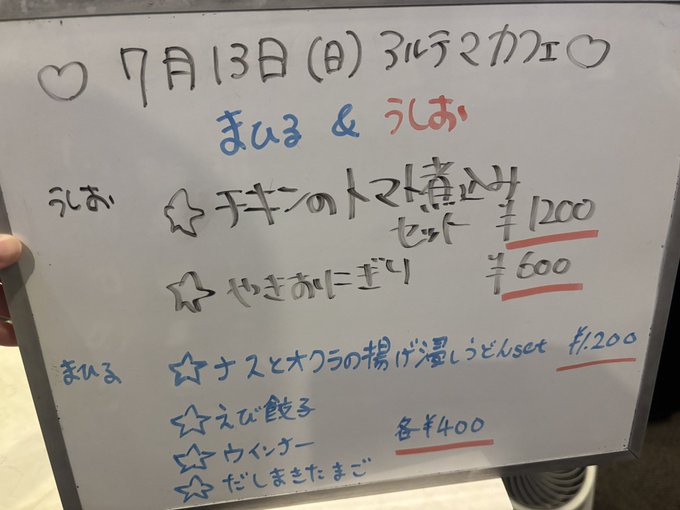 ♡ 7月13日(日) アルテマカフェ♡
まひる & うしお
うしお ☆ チキンのトマト煮込み
セット ¥1200
☆ やきおにぎり ¥600
まひる ☆ ナスとオクラの揚げ浸しうどんset ¥1.200
☆ えび餃子
☆ ウインナー 各¥400
☆ だしまきたまご